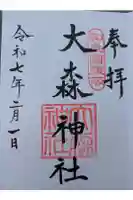 奉拝
大森神社
令和七年二月一日